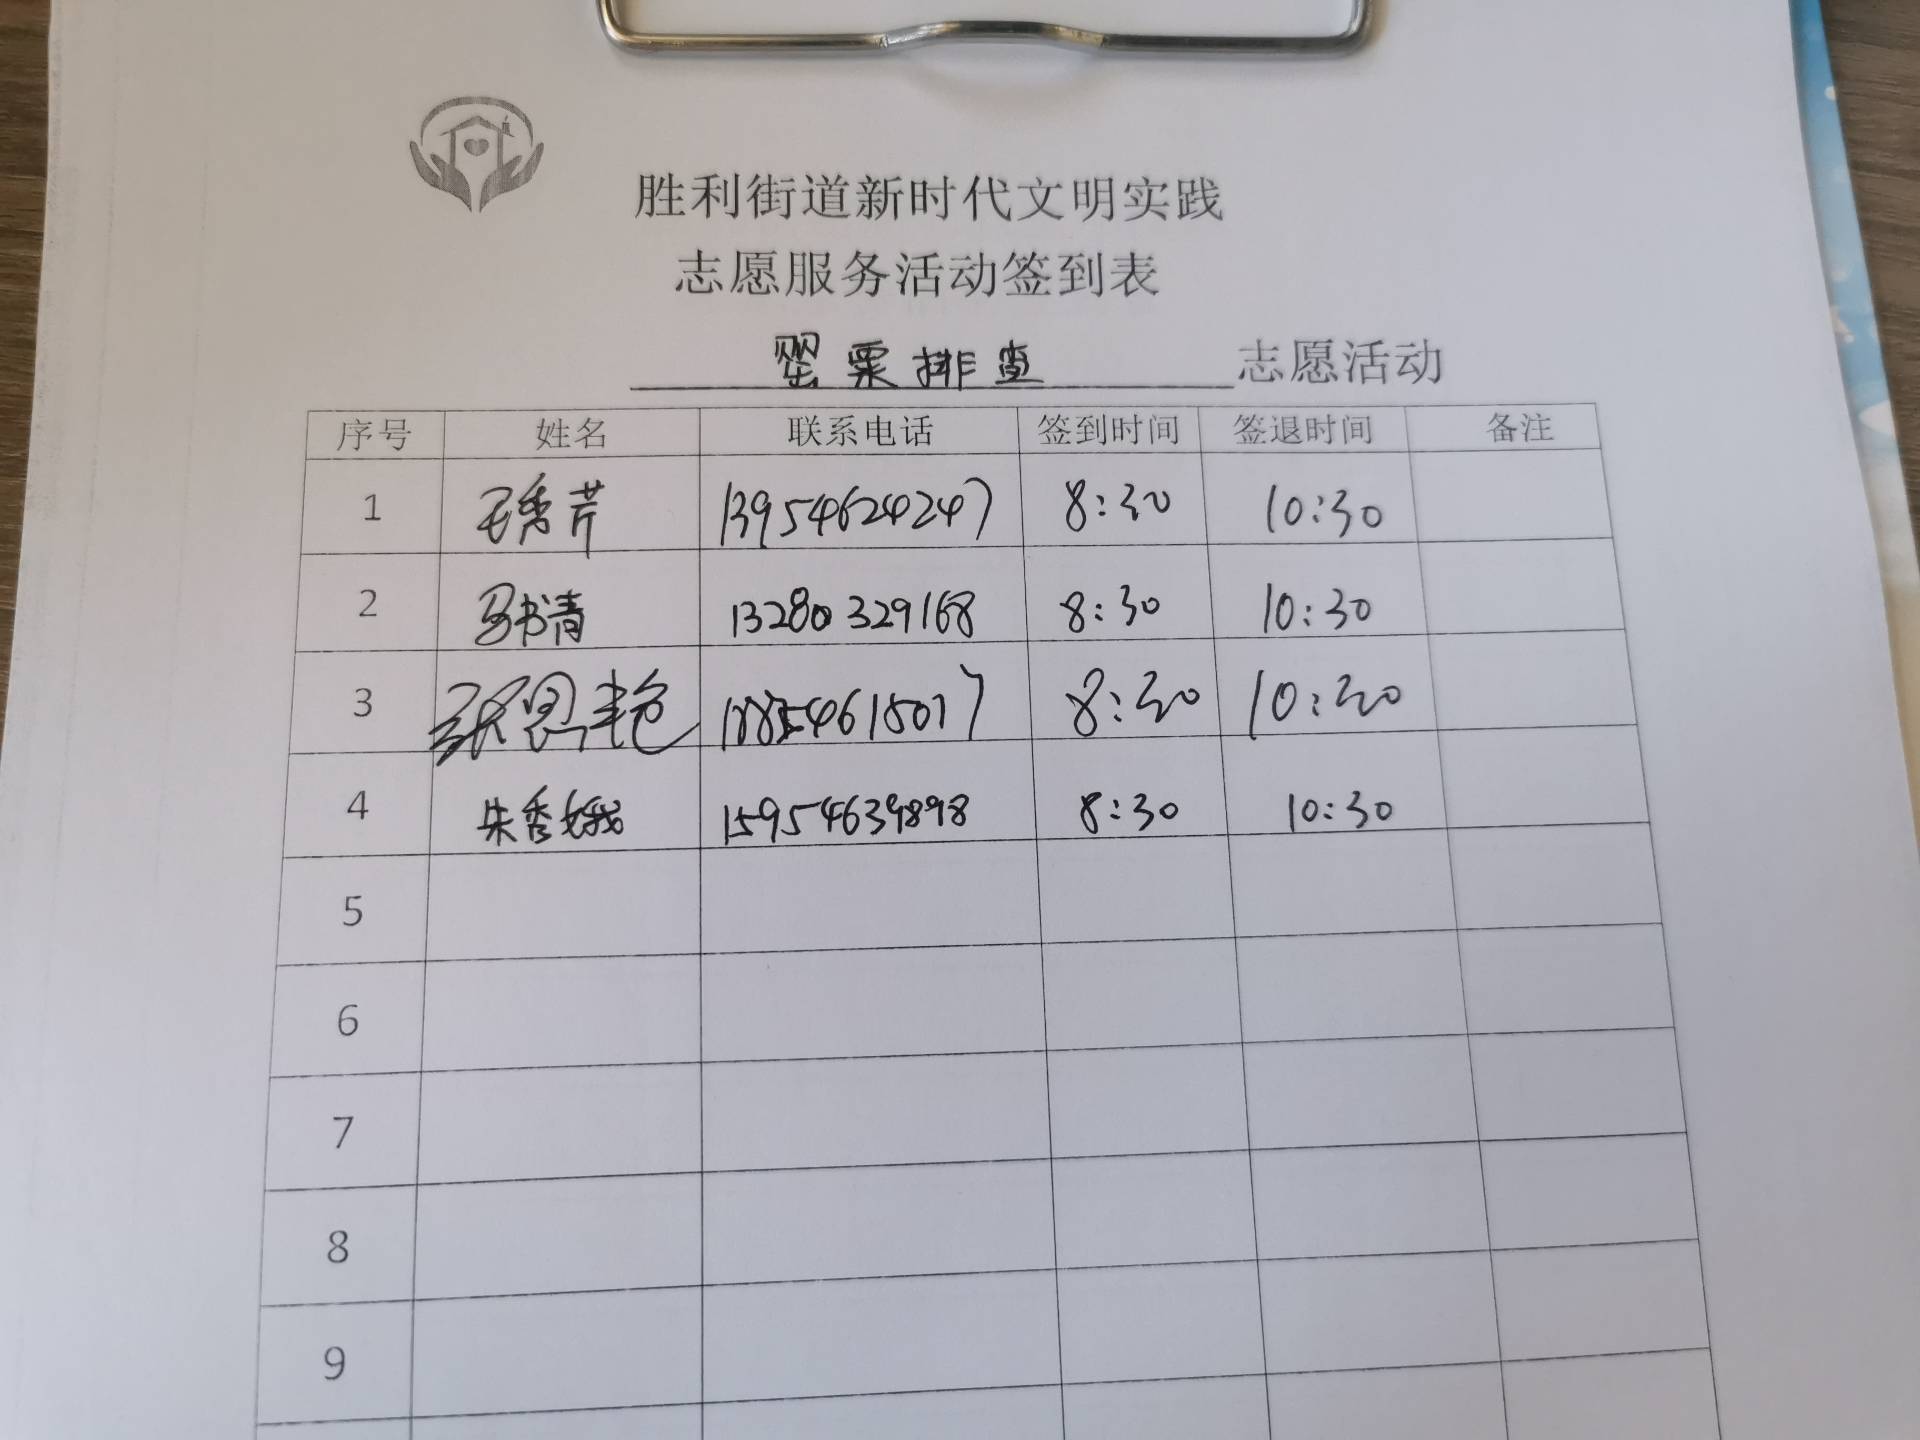 胜利街道新时代文明实践
志愿服务活动签到表
罂粟排查 志愿活动
序号 姓名 联系电话 签到时间 签退时间 备注
1 王秀芹 13954624247 8:30 10:30
2 马书青 13280329168 8:30 10:30
3 8:30 10:30
4 朱秀娥 15954639898 8:30 10:30
5
6
7
8
9